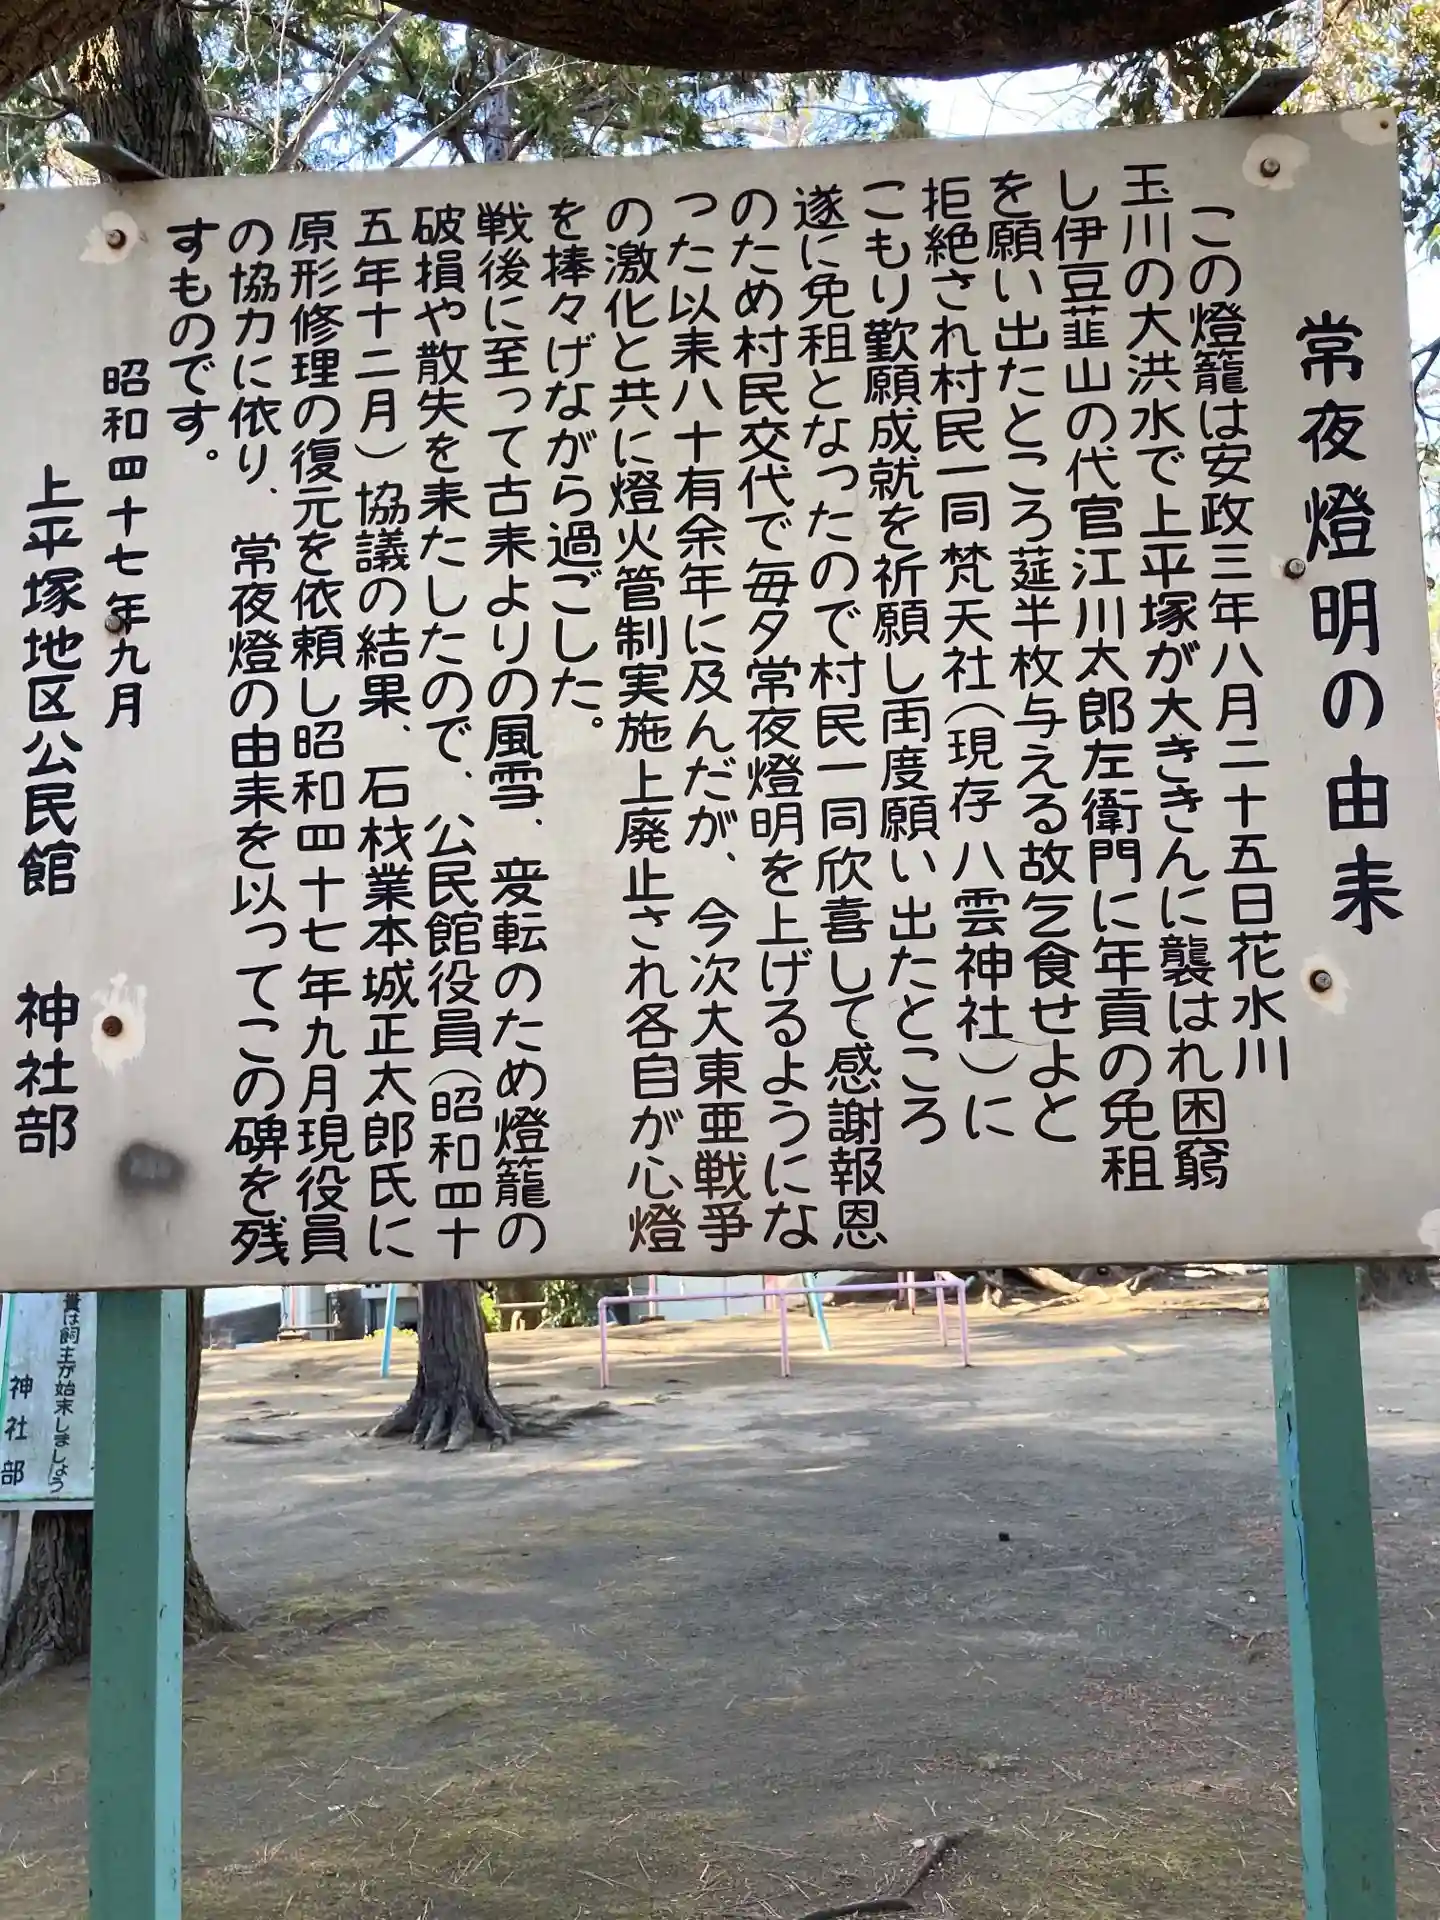 常夜燈明の由来
この燈籠は安政三年八月二十五日花水川
玉川の大洪水で上平塚が大ききんに襲はれ困窮
し伊豆韮山の代官江川太郎左衛門に年貢の免租
を願い出たところ莚半枚与える故乞食せよと
拒絶され村民一同梵天社(現存八雲神社)に
こもり歎願成就を祈願し再度願い出たところ
遂に免租となったので村民一同欣喜して感謝報恩
のため村民交代で毎夕常夜燈明を上げるようにな
った以来八十有余年に及んだが、今次大東亜戦争
の激化と共に燈火管制実施上廃止され各自が心燈
を捧々げながら過ごした。
戦後に至って古来よりの風雪、変転のため燈籠の
破損や散失を来たしたので、公民館役員(昭和四十
五年十二月)協議の結果、石材業本城正太郎氏に
原形修理の復元を依頼し昭和四十七年九月現役員
の協力に依り、常夜燈の由来を以ってこの碑を残
すものです。
昭和四十七年九月
上平塚地区公民館 神社部
糞は飼主が始末しましょう
神社部